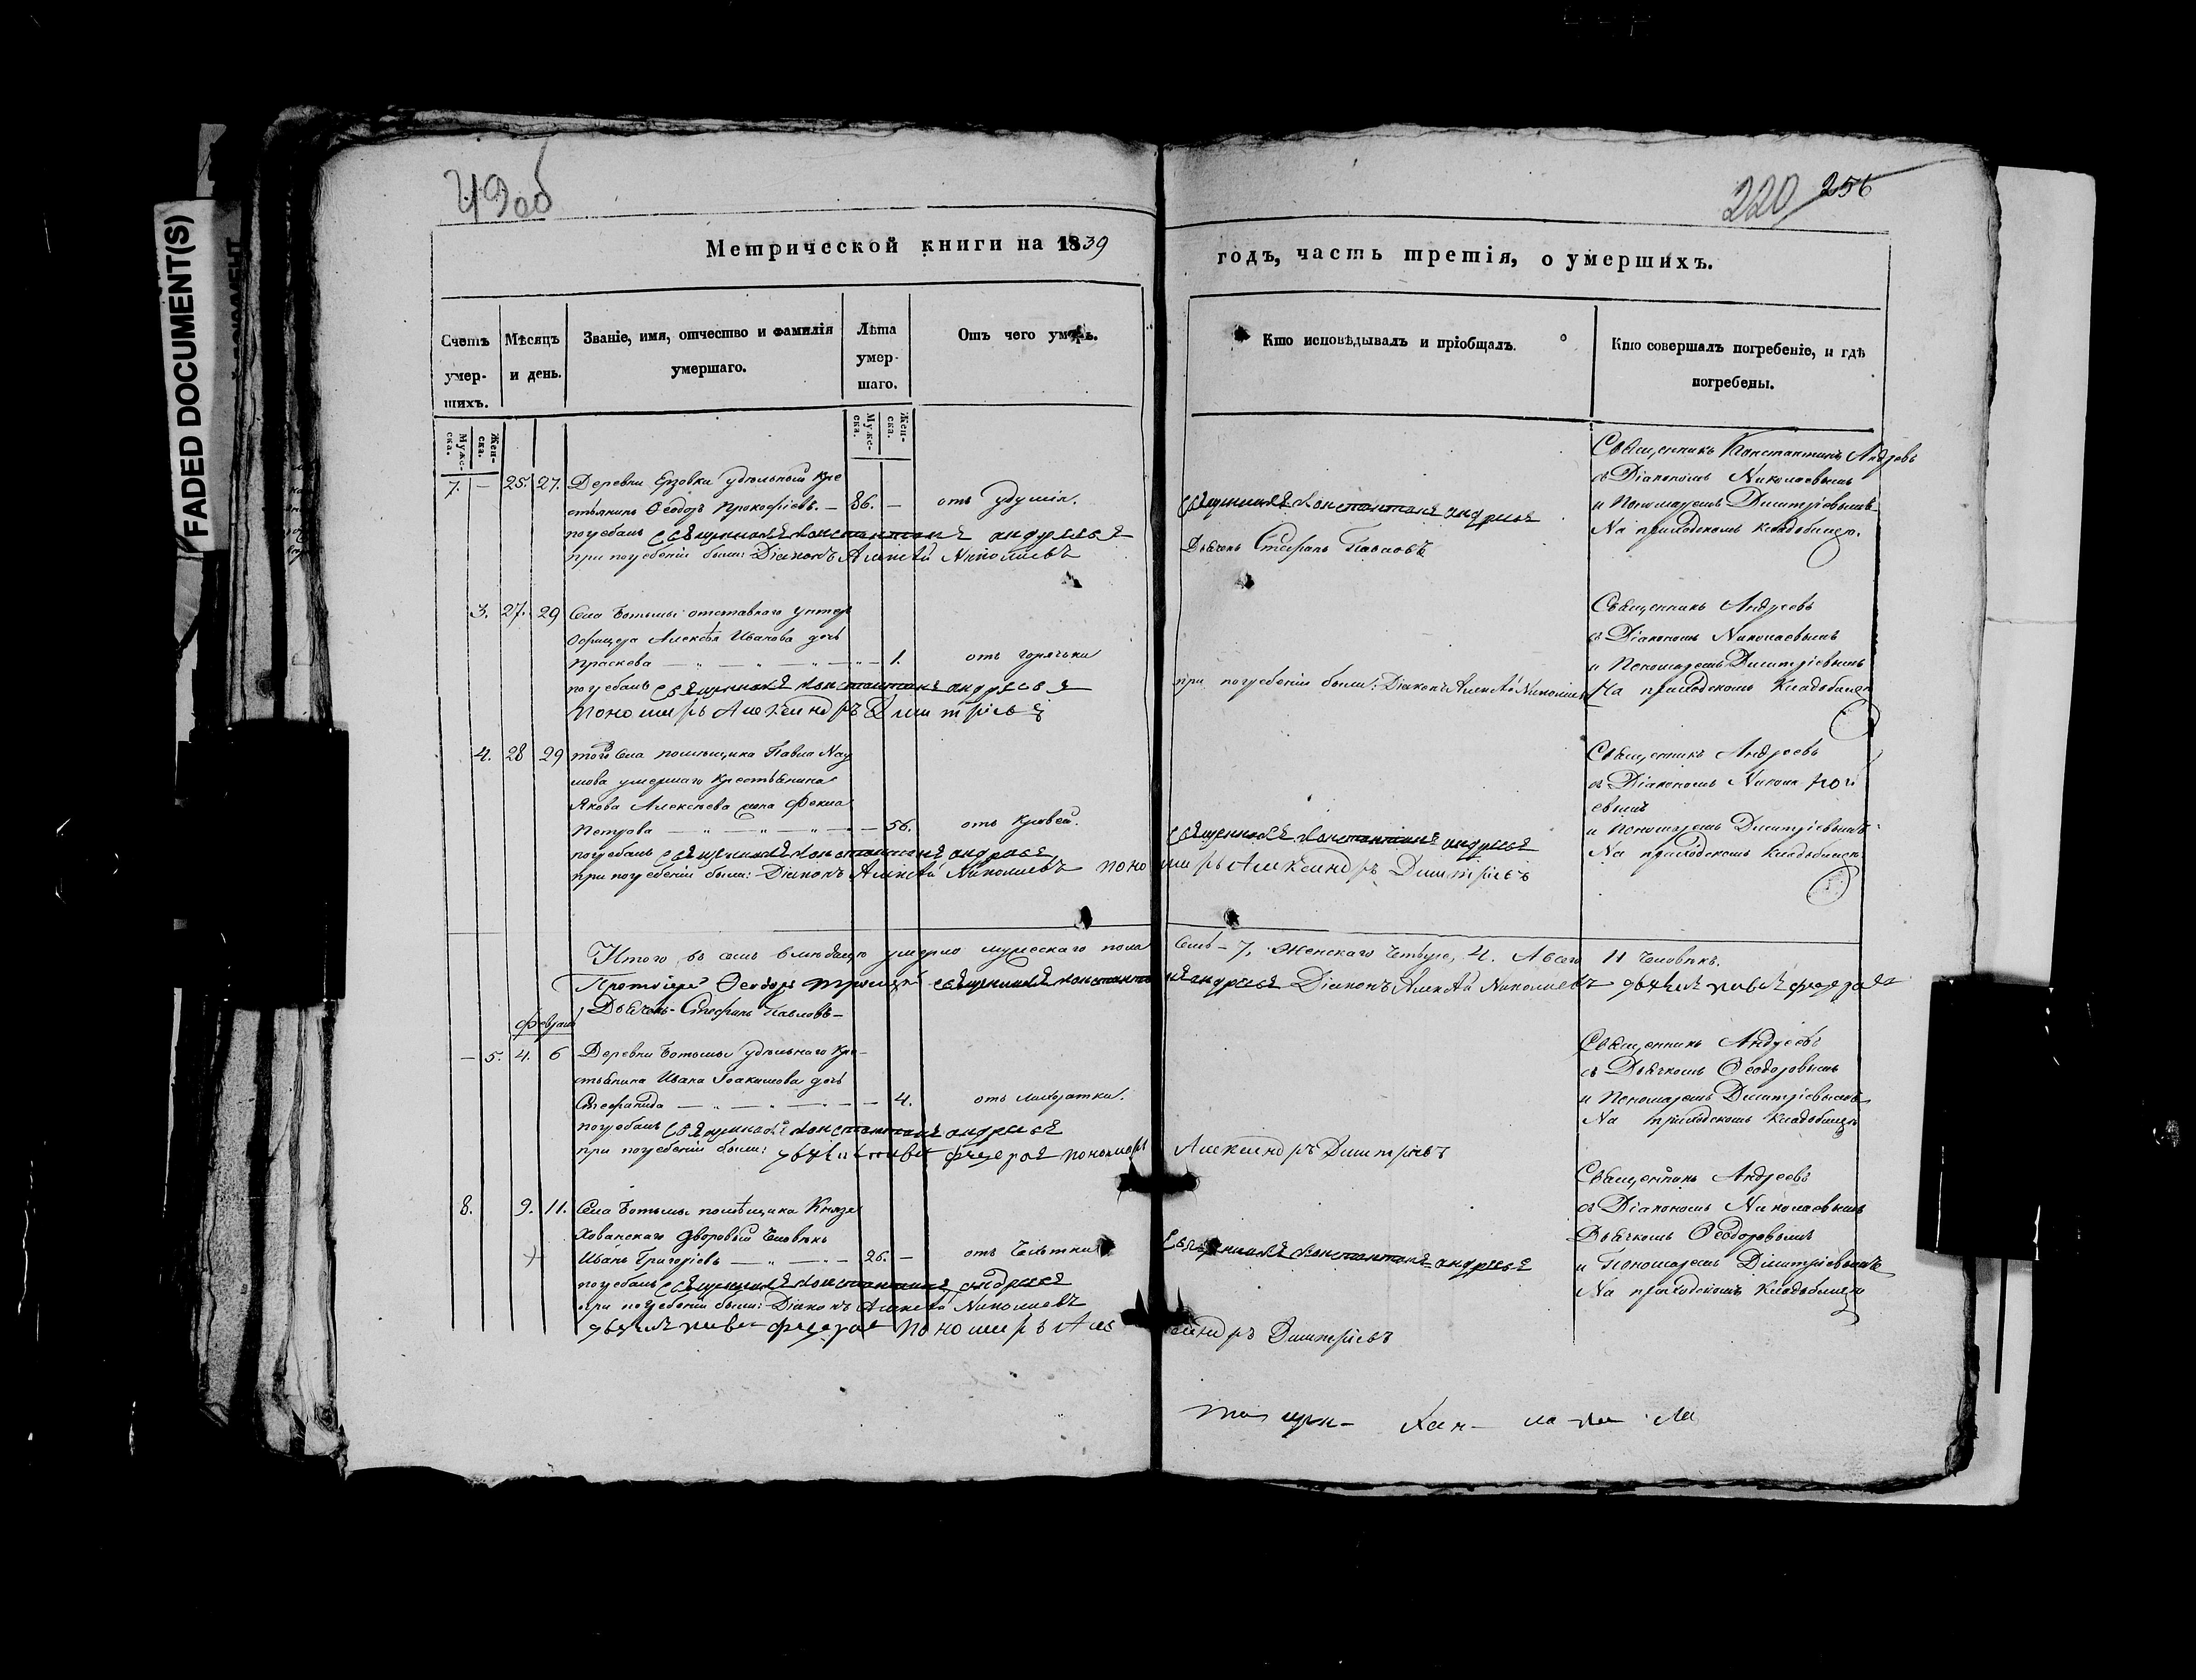 FADED DOCUMENT(S)
220 256
Метрической книги на 1839
годъ, часть третія, о умершихъ.
Счетъ умер-шихъ.
Мѣсяцъ и день.
Званіе, имя, отчество и фамилія умершаго.
Лѣта умер-шаго.
Отъ чего умеръ.
Кто исповѣдывалъ и пріобщалъ.
Кто совершалъ погребеніе, и гдѣ погребены.
Мужс-ска. Жен-ска.
Мужс-ска. Жен-ска.
7. — 25. 27. Деревни Ерзовки удѣльный кре
стьянинъ Ѳеодоръ Прокофіевъ. — 86. — отъ удушія.
погребалъ священникъ Константинъ Андреевъ
при погребеніи были: Діаконъ Алексѣй Николаевъ
священникъ Константинъ Андреевъ
Дьячекъ Стефанъ Павловъ
Священникъ Константинъ Андреевъ
съ Діакономъ Николаевымъ
и Пономаремъ Димитріевымъ
На приходскомъ кладбищѣ.
3. 27. 29 Села Ботьмы отставнаго унтер
Офицера Алексѣя Иванова дочь
Праскева — „ — „ — „ — „ — 1. отъ горячьки
погребалъ священникъ Константинъ Андреевъ
Пономарь Александръ Димитріевъ
при погребеніи были: Діаконъ Алексѣй Николаевъ
Священникъ Андреевъ
съ Діакономъ Николаевымъ
и Пономаремъ Димитріевымъ
На приходскомъ кладбищѣ
4. 28 29 того села помѣщика Павла Нау
мова умершаго крестьянина
Якова Алексѣева жена Фекла
Петрова — „ — „ — „ — 56. отъ кровей.
погребалъ священникъ Константинъ Андреевъ
при погребеніи были: Діаконъ Алексѣй Николаевъ Пономарь Александръ Димитріевъ
священникъ Константинъ Андреевъ
Священникъ Андреевъ
съ Діакономъ Никола
евымъ
и Пономаремъ Димитріевымъ
На приходскомъ кладбищѣ
Итого въ семъ мѣсяцѣ умерло мужескаго пола семь — 7, женскаго четыре, 4. А всего 11 человѣкъ.
Протоіерей Ѳеодоръ священникъ Константинъ Андреевъ Діаконъ Алексѣй Николаевъ
Дьячекъ Стефанъ Павловъ —
Февраль
— 5. 4. 6 Деревни Ботьмы удѣльнаго кре-
стьянина Ивана Іоакимова дочь
Стефанида — „ — „ — „ — 4. отъ лихоратки.
погребалъ священникъ Константинъ Андреевъ
при погребеніи были: Пономарь Александръ Димитріевъ
Священникъ Андреевъ
съ Дьячкомъ Ѳеодоровымъ
и Пономаремъ Димитріевымъ
На приходскомъ кладбищѣ
8. 9. 11. Села Ботьмы помѣщика Князя
Хованскаго дворовый человѣкъ
Иванъ Григоріевъ — „ — „ — 26. — отъ чахотки
погребалъ священникъ Константинъ Андреевъ
при погребеніи были: Діаконъ Алексѣй Николаевъ
Пономарь Александръ Димитріевъ
священникъ Константинъ Андреевъ
Священникъ Андреевъ
съ Діакономъ Николаевымъ
Дьячкомъ Ѳеодоровымъ
и Пономаремъ Димитріевымъ
На приходскомъ кладбищѣ